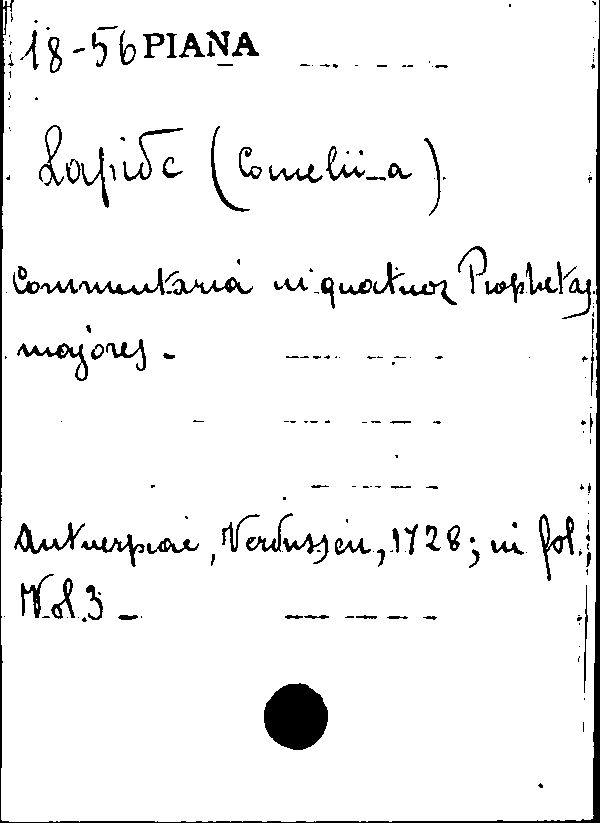 18-56 PIANA
Lapide (Cornelii a)
Commentaria in quatuor Prophetas
majores -
Antuerpiae, Verdussen, 1728; in fol.
Vol. 3 -